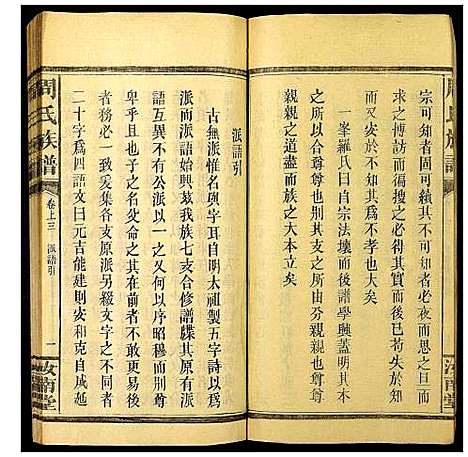 周氏族譜
宗可知者固可續其不可知者必夜而思之旦而
求之博訪而得搜之必得其實而後已苟失於此
而又安於不知其爲不孝大矣
一峯羅氏曰自宗法壞而後譜學興蓋明其本
支之所由分親親也尊尊
親親之道盡而族之大本立矣
汝南堂
派語引
古無派惟名與字耳自明太祖製五字詩以爲
派而派語始興玆我族七支合修譜牒其原有派
語互異不有公派以一之又何以序昭穆而別尊
卑乎且也三代之名爻命之其在前者不敢更易後
者務必一律爰集各支原派另綴文字之不同者
二十字爲四語文曰元吉能建則安和克自成延
周氏族譜
卷上三
派語引
一
汝南堂